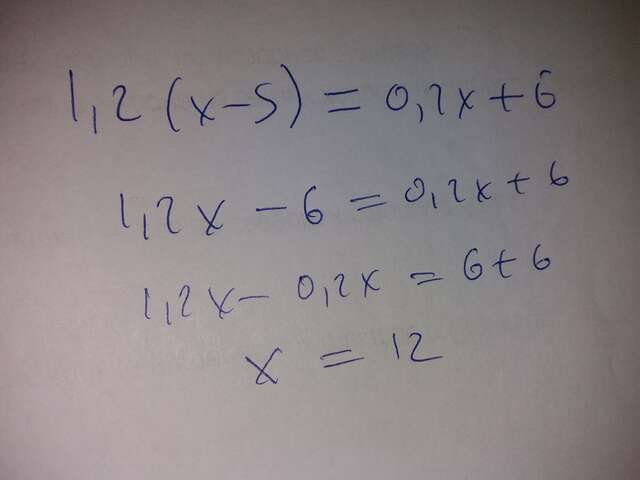 1,2 (x-5) = 0,2x + 6
1,2x - 6 = 0,2x + 6
1,2x - 0,2x = 6+6
x = 12